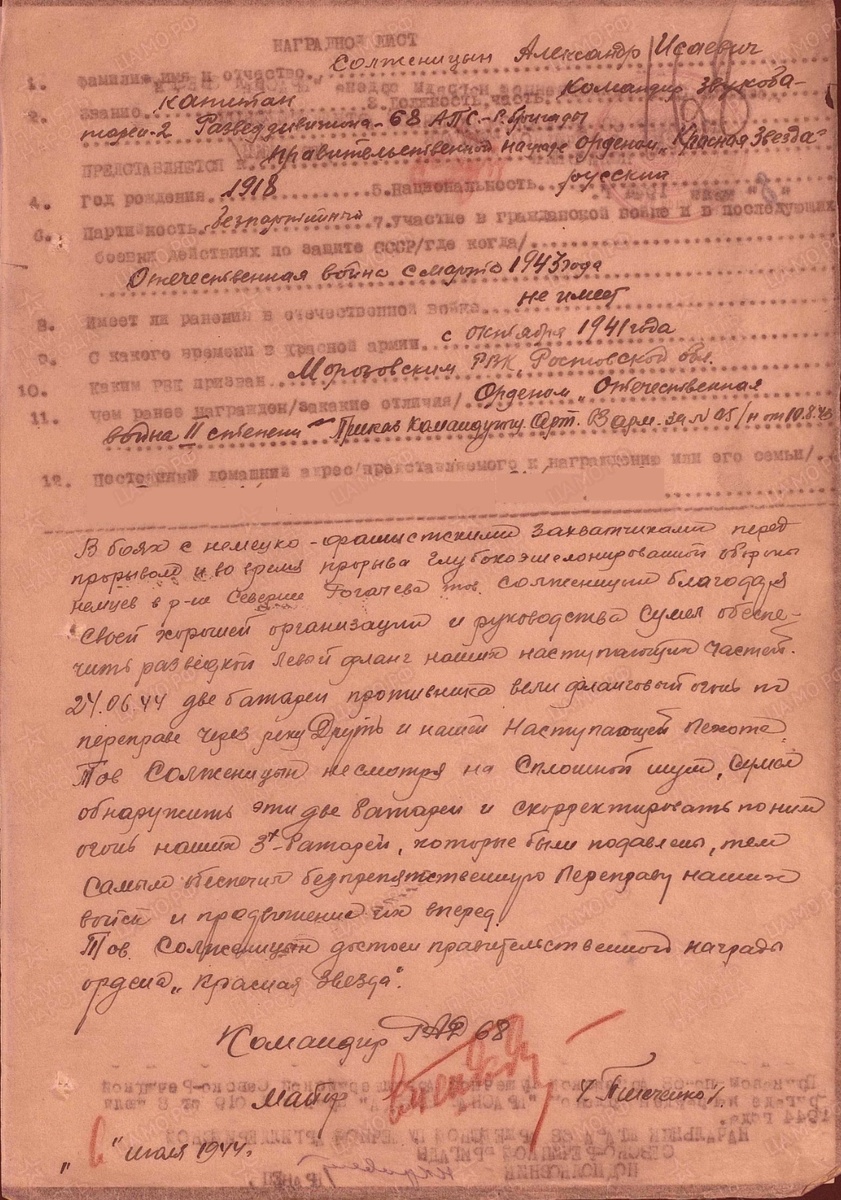 НАГРАДНОЙ ЛИСТ
1. Фамилия, имя и отчество. Солженицын Александр Исаевич
2. Звание. капитан 3. Должность, часть. Командир звукова-
тареи-2 Разведдивизиона-68 АПС-Р. бригады
ПРЕДСТАВЛЯЕТСЯ К. правительственной награде орденом „Красная Звезда"
4. Год рождения. 1918 5. Национальность. русский
6. Партийность. беспартийный 7. участие в гражданской войне и в последующих
боевых действиях по защите СССР/где когда/
Отечественная война с марта 1943 года
8. Имеет ли ранения в отечественной войне. не имеет
9. С какого времени в Красной армии. с октября 1941 года
10. Каким РВК призван. Морозовским РВК, Ростовской обл.
11. Чем ранее награжден/закакие отличия/ Орденом „Отечественная
война II степени" Приказ Командующ. Арт. 3 арм. за № 05/н от 10.8.43
12. Постоянный домашний адрес/представляемого к награждению или его семьи/
В боях с немецко-фашистскими захватчиками перед
прорывом и во время прорыва глубокоэшелонированной обороны
немцев в р-не Севернее Рогачева тов. Солженицын благодаря
своей хорошей организации и руководства сумел обеспе-
чить разведкой левый фланг наших наступающих частей.
24.06.44 две батареи противника вели фланговый огонь по
переправе через реку Друть и нашей Наступающей Пехоте.
Тов Солженицын несмотря на Сплошной шум, сумел
обнаружить эти две Батареи и скорректировать по ним
огонь наших 3х-Батарей, которые были подавлены, тем
самым обеспечил безпрепятственную Переправу наших
войск и продвижение их вперед.
Тов. Солженицын достоин правительственной награды
ордена „Красная Звезда".
Командир РАД 68
Майор /Пшеченко/
„6" июля 1944г.